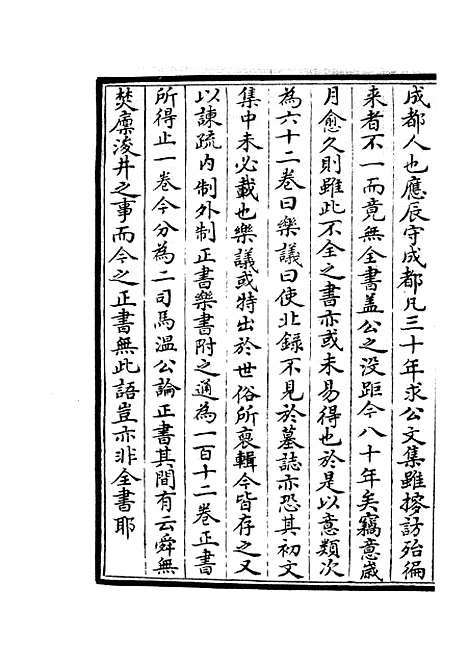 成都人也應辰守成都凡三十年求公文集雖搜訪殆徧
来者不一而竟無全書盖公之没距今八十年矣竊意歳
月愈久則雖此不全之書亦或未易得也於是以意類次
為六十二卷曰樂議曰使北録不見於墓誌亦恐其初文
集中未必載也樂議或特出於世俗所裒輯今皆存之又
以諫疏内制外制正書樂書附之通為一百十二卷正書
所得止一卷今分為二司馬温公論正書其間有云舜無
焚廪浚井之事而今之正書無此語豈亦非全書耶